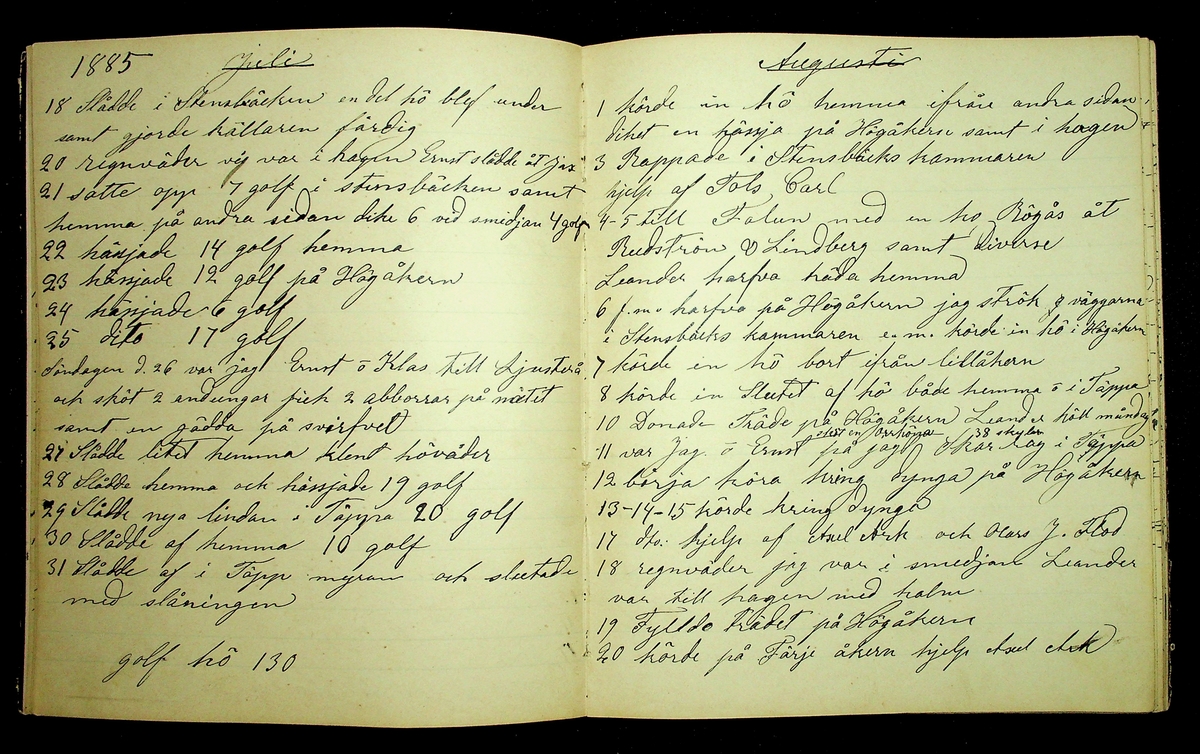 1885 Juli
18 Slådde i Stensbäcken en del hö blef under
samt gjorde källaren färdig
20 regnväder vij var i hagen Ernst slådde åt
21 satte opp 7 golf i stensbäcken samt
hemma på andra sidan dike 6 ved smidjan 4 golf
22 hässjade 14 golf hemma
23 hässjade 12 golf på Högåkern
24 hässjade 6 golf
25 dito 17 golf
Söndagen d. 26 var jag Ernst o Klas till Ljusterå
och sköt 2 andungar fick 2 abborrar på nätet
samt en gädda på svirfvel
27 Slådde litet hemma klent höväder
28 Slådde hemma och hässjade 19 golf
29 Slådde nya lindan i Täppa 20 golf
30 Slådde af hemma 10 golf
31 Slådde af i Täpp myran och slutade
med slåningen
golf hö 130
Augusti
1 körde in hö hemma ifrån andra sidan
diket en hässja på Högåkern samt i hagen
3 Rappade i Stensbäcks kammaren
hjelp af Tols Carl
4-5 till Falun med en ko Rögås åt
Rudström & Lindberg samt diverse
Leander harfva träda hemma
6 f.m. harfva på Högåkern jag strök väggarna
i Stensbäcks kammaren e.m. körde in hö i Högåkern
7 körde in hö bort ifrån lillåkern
8 körde in Slutet af hö både hemma o i Täppa
10 Donade Träde på Högåkern Leander höll måndag
sköt en Orrhöna 38 skylar
11 var jag o Ernst på jagt Skar Råg i Täppa
12 börja köra kring dynga på Högåkern
13-14-15 körde kring dynga
17 dto. hjelp af Axel Ark och Lars J. Flod
18 regnväder jag var i smedjan Leander
var till hagen med halm
19 Fylldo trädet på Högåkern
20 körde på Färje åkern hjelp Axel Ark